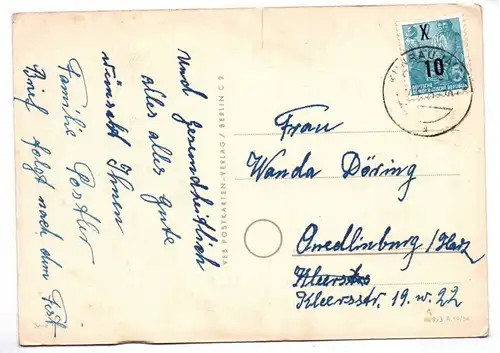 Und gesundheitlich
alles alles gute
wünscht Ihnen
Familie Postler
Brief folgt nach dem Fest
VEB POSTKARTEN-VERLAG / BERLIN C 2
X
10
DEUTSCHE
DEMOKRATISCHE REPUBLIK
Frau
Wanda Döring
Quedlinburg/Harz
Kleersstr. 19. w. 22